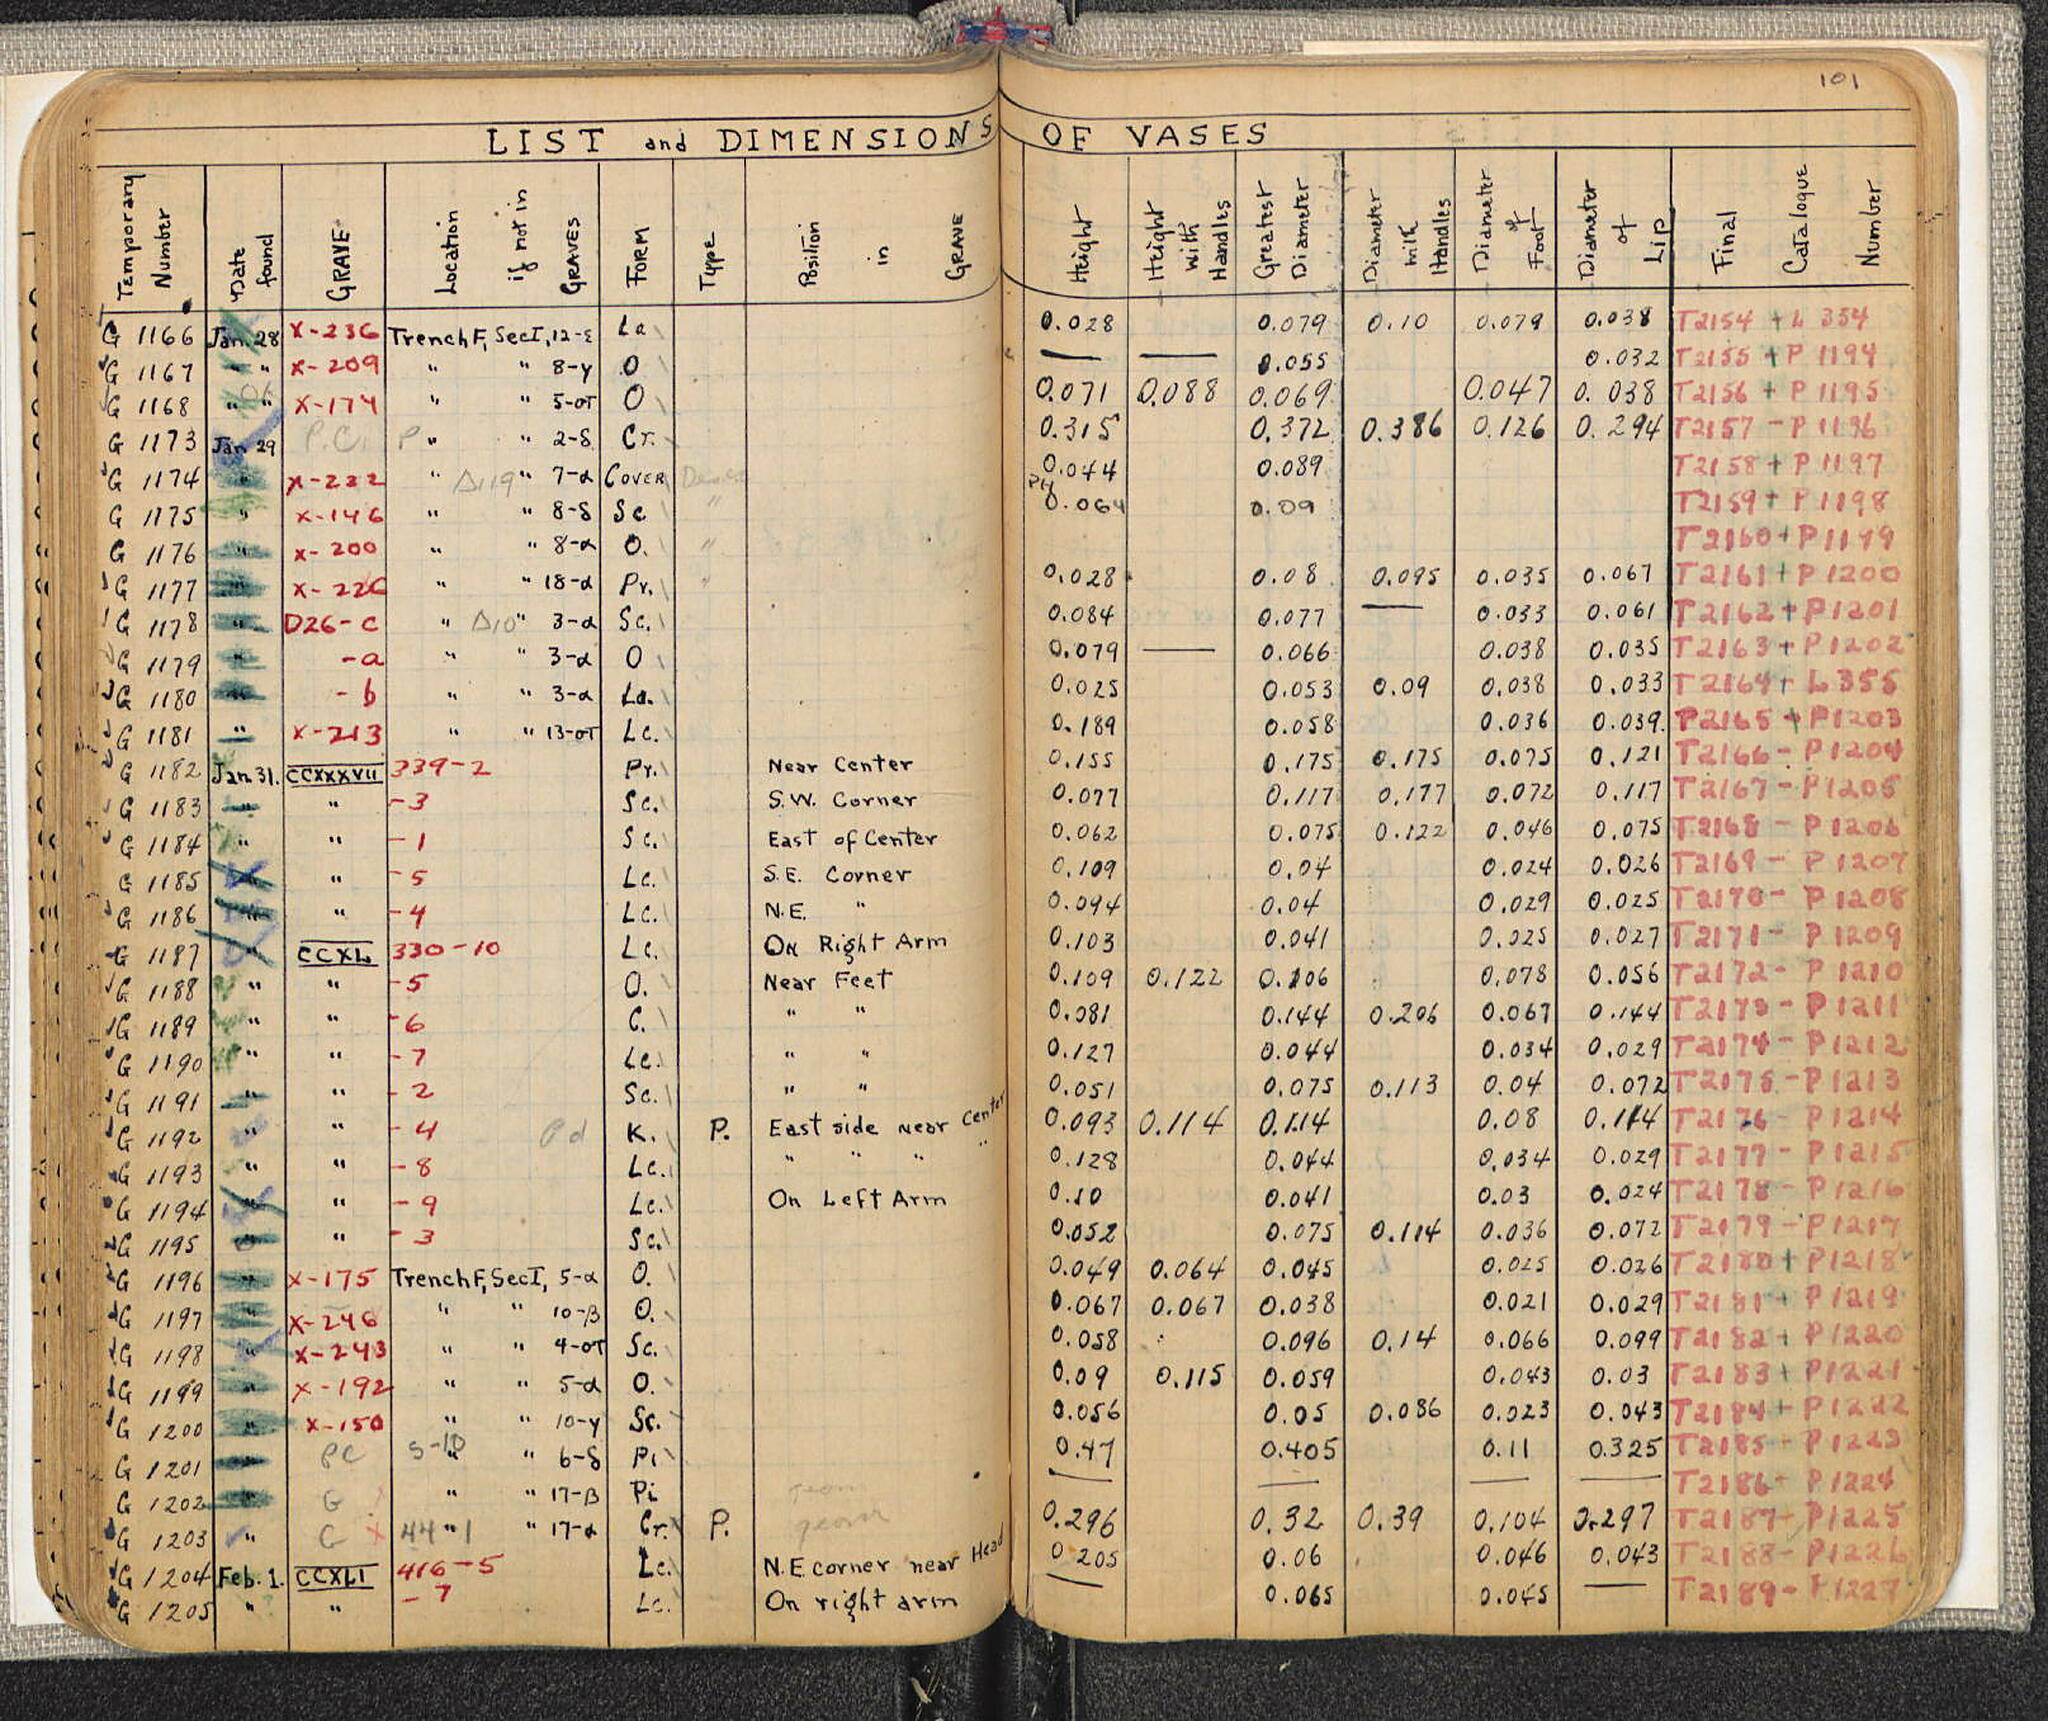 101
LIST and DIMENSIONS OF VASES
Temporary Number | Date found | GRAVE | Location if not in GRAVES | FORM | Type | Position in GRAVE | Height | Height with Handles | Greatest Diameter | Diameter with Handles | Diameter of Foot | Diameter of Lip | Final Catalogue Number
G 1166 Jan. 28 X-236 Trench F, Sec I, 12-ε La 0.028 0.079 0.10 0.079 0.038 T2154 + L 354
G 1167 " " X-209 " " 8-γ O — — 0.055 0.032 T2155 + P 1194
G 1168 " " X-174 " " 5-στ O 0.071 0.088 0.069 0.047 0.038 T2156 + P 1195
G 1173 Jan 29 P.C. P " " 2-δ Cr. 0.315 0.372 0.386 0.126 0.294 T2157 - P 1196
G 1174 " X-222 " Δ119 " 7-α COVER 0.044 0.089 T2158 + P 1197
G 1175 " X-146 " " 8-δ Sc " 0.064 0.09 T2159 + P 1198
G 1176 " X-200 " " 8-α O. " T2160 + P 1199
G 1177 " X-226 " " 18-α Pr. " 0.028 0.08 0.095 0.035 0.067 T2161 + P 1200
G 1178 " D26-c " Δ10 " 3-α Sc. 0.084 0.077 — 0.033 0.061 T2162 + P 1201
G 1179 " -a " " 3-α O 0.079 — 0.066 0.038 0.035 T2163 + P 1202
G 1180 " -b " " 3-α La. 0.025 0.053 0.09 0.038 0.033 T2164 + L 355
G 1181 " X-213 " " 13-στ Lc. 0.189 0.058 0.036 0.039. T2165 + P 1203
G 1182 Jan 31. CCXXXVII 339-2 Pr. Near Center 0.155 0.175 0.175 0.075 0.121 T2166 - P 1204
G 1183 " " -3 Sc. S.W. Corner 0.077 0.117 0.177 0.072 0.117 T2167 - P 1205
G 1184 " " -1 Sc. East of Center 0.062 0.075 0.122 0.046 0.075 T2168 - P 1206
G 1185 " " -5 Lc. S.E. Corner 0.109 0.04 0.024 0.026 T2169 - P 1207
G 1186 " " -4 Lc. N.E. " 0.094 0.04 0.029 0.025 T2170 - P 1208
G 1187 " CCXL 330-10 Lc. On Right Arm 0.103 0.041 0.025 0.027 T2171 - P 1209
G 1188 " " -5 O. Near Feet 0.109 0.122 0.106 0.078 0.056 T2172 - P 1210
G 1189 " " -6 C. " " 0.081 0.144 0.206 0.067 0.144 T2173 - P 1211
G 1190 " " -7 Lc. " " 0.127 0.044 0.034 0.029 T2174 - P 1212
G 1191 " " -2 Sc. " " 0.051 0.075 0.113 0.04 0.072 T2175 - P 1213
G 1192 " " -4 Pd K. P. East side near Center 0.093 0.114 0.114 0.08 0.114 T2176 - P 1214
G 1193 " " -8 Lc. " " " " 0.128 0.044 0.034 0.029 T2177 - P 1215
G 1194 " " -9 Lc. On Left Arm 0.10 0.041 0.03 0.024 T2178 - P 1216
G 1195 " " -3 Sc. 0.052 0.075 0.114 0.036 0.072 T2179 - P 1217
G 1196 " X-175 Trench F, Sec I, 5-α O. 0.049 0.064 0.045 0.025 0.026 T2180 + P 1218
G 1197 " X-246 " " 10-β O. 0.067 0.067 0.038 0.021 0.029 T2181 + P 1219
G 1198 " X-243 " " 4-στ Sc. 0.058 0.096 0.14 0.066 0.099 T2182 + P 1220
G 1199 " X-192 " " 5-α O. 0.09 0.115 0.059 0.043 0.03 T2183 + P 1221
G 1200 " X-150 " " 10-γ Sc. 0.056 0.05 0.086 0.023 0.043 T2184 + P 1222
G 1201 " PC S-10 " " 6-δ Pi 0.47 0.405 0.11 0.325 T2185 - P 1223
G 1202 " G " " 17-β Pi geom — — — — T2186 - P 1224
G 1203 " G X 44 " 1 " 17-α Cr. P. geom 0.296 0.32 0.39 0.104 0.297 T2187 - P 1225
G 1204 Feb. 1. CCXLI 416-5 Lc. N.E. corner near Head 0.205 0.06 0.046 0.043 T2188 - P 1226
G 1205 " " -7 Lc. On right arm — 0.065 0.045 — T2189 - P 1227